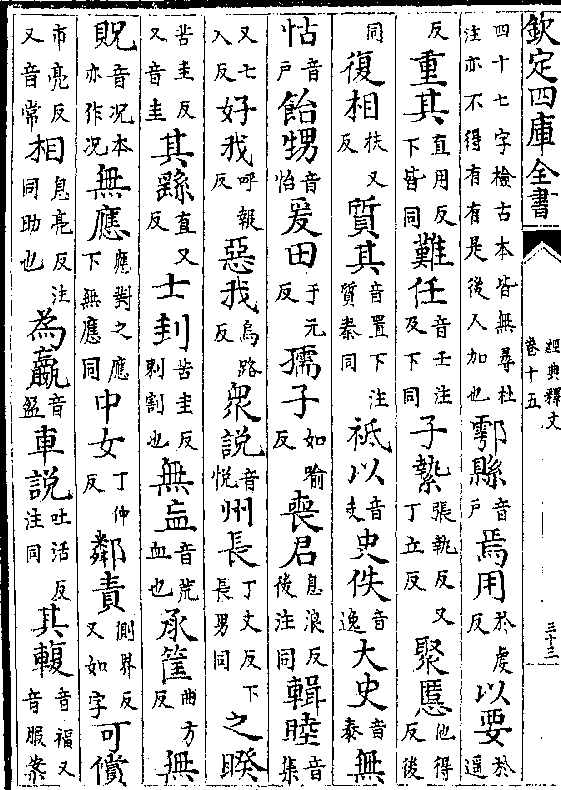 欽定四庫全書
經典釋文
卷十五
三十三
四十七字檢古本皆無尋杜注亦不得有有是後人加也鄠縣音戶焉用於虔反以要於遥
反重其直用反下皆同難任音壬注及下同子縶張執反又丁立反聚慝他得反後
同復相扶又反質其音置下注質秦同祇以音支史佚音逸大史音泰無
怙音戶飴甥音怡爰田于元反孺子如喻反喪君息浪反後注同輯睦音集
又七入反好我呼報反惡我烏路反衆說音悅州長丁丈反下長男同之睽
苦圭反又音圭其繇直又反士刲苦圭反刺割也無衁音荒血也承筐曲方反無
貺音况本亦作况無應應對之應下無應同中女丁仲反鄰責側界反又如字可償
市亮反又音常相息亮反注同助也為嬴音盈車說吐活反注同其輹音福又音服案